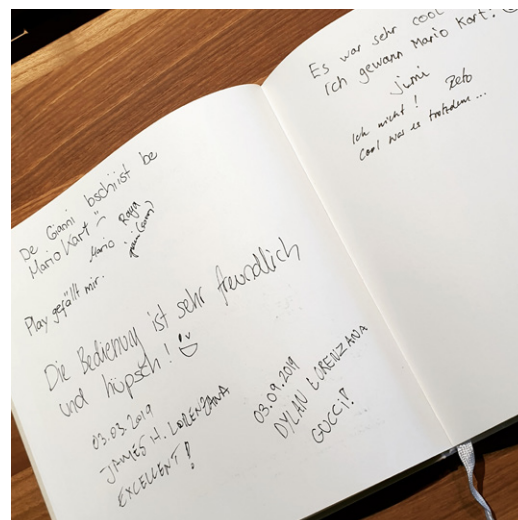 De Gianni bschiist be
Mario Kart
Mario Raya
Play gefällt mir.
Die Bedienung ist sehr freundlich
und hüpsch!
03.03.2019
JAMES H. LORENZANA
EXCELLENT!
03.09.2019
DYLAN LORENZANA
GUCCI!
Es war sehr cool
Ich gewann Mario Kart!
Jimi
Zeto
Ich nicht!
Cool war es trotzdem...